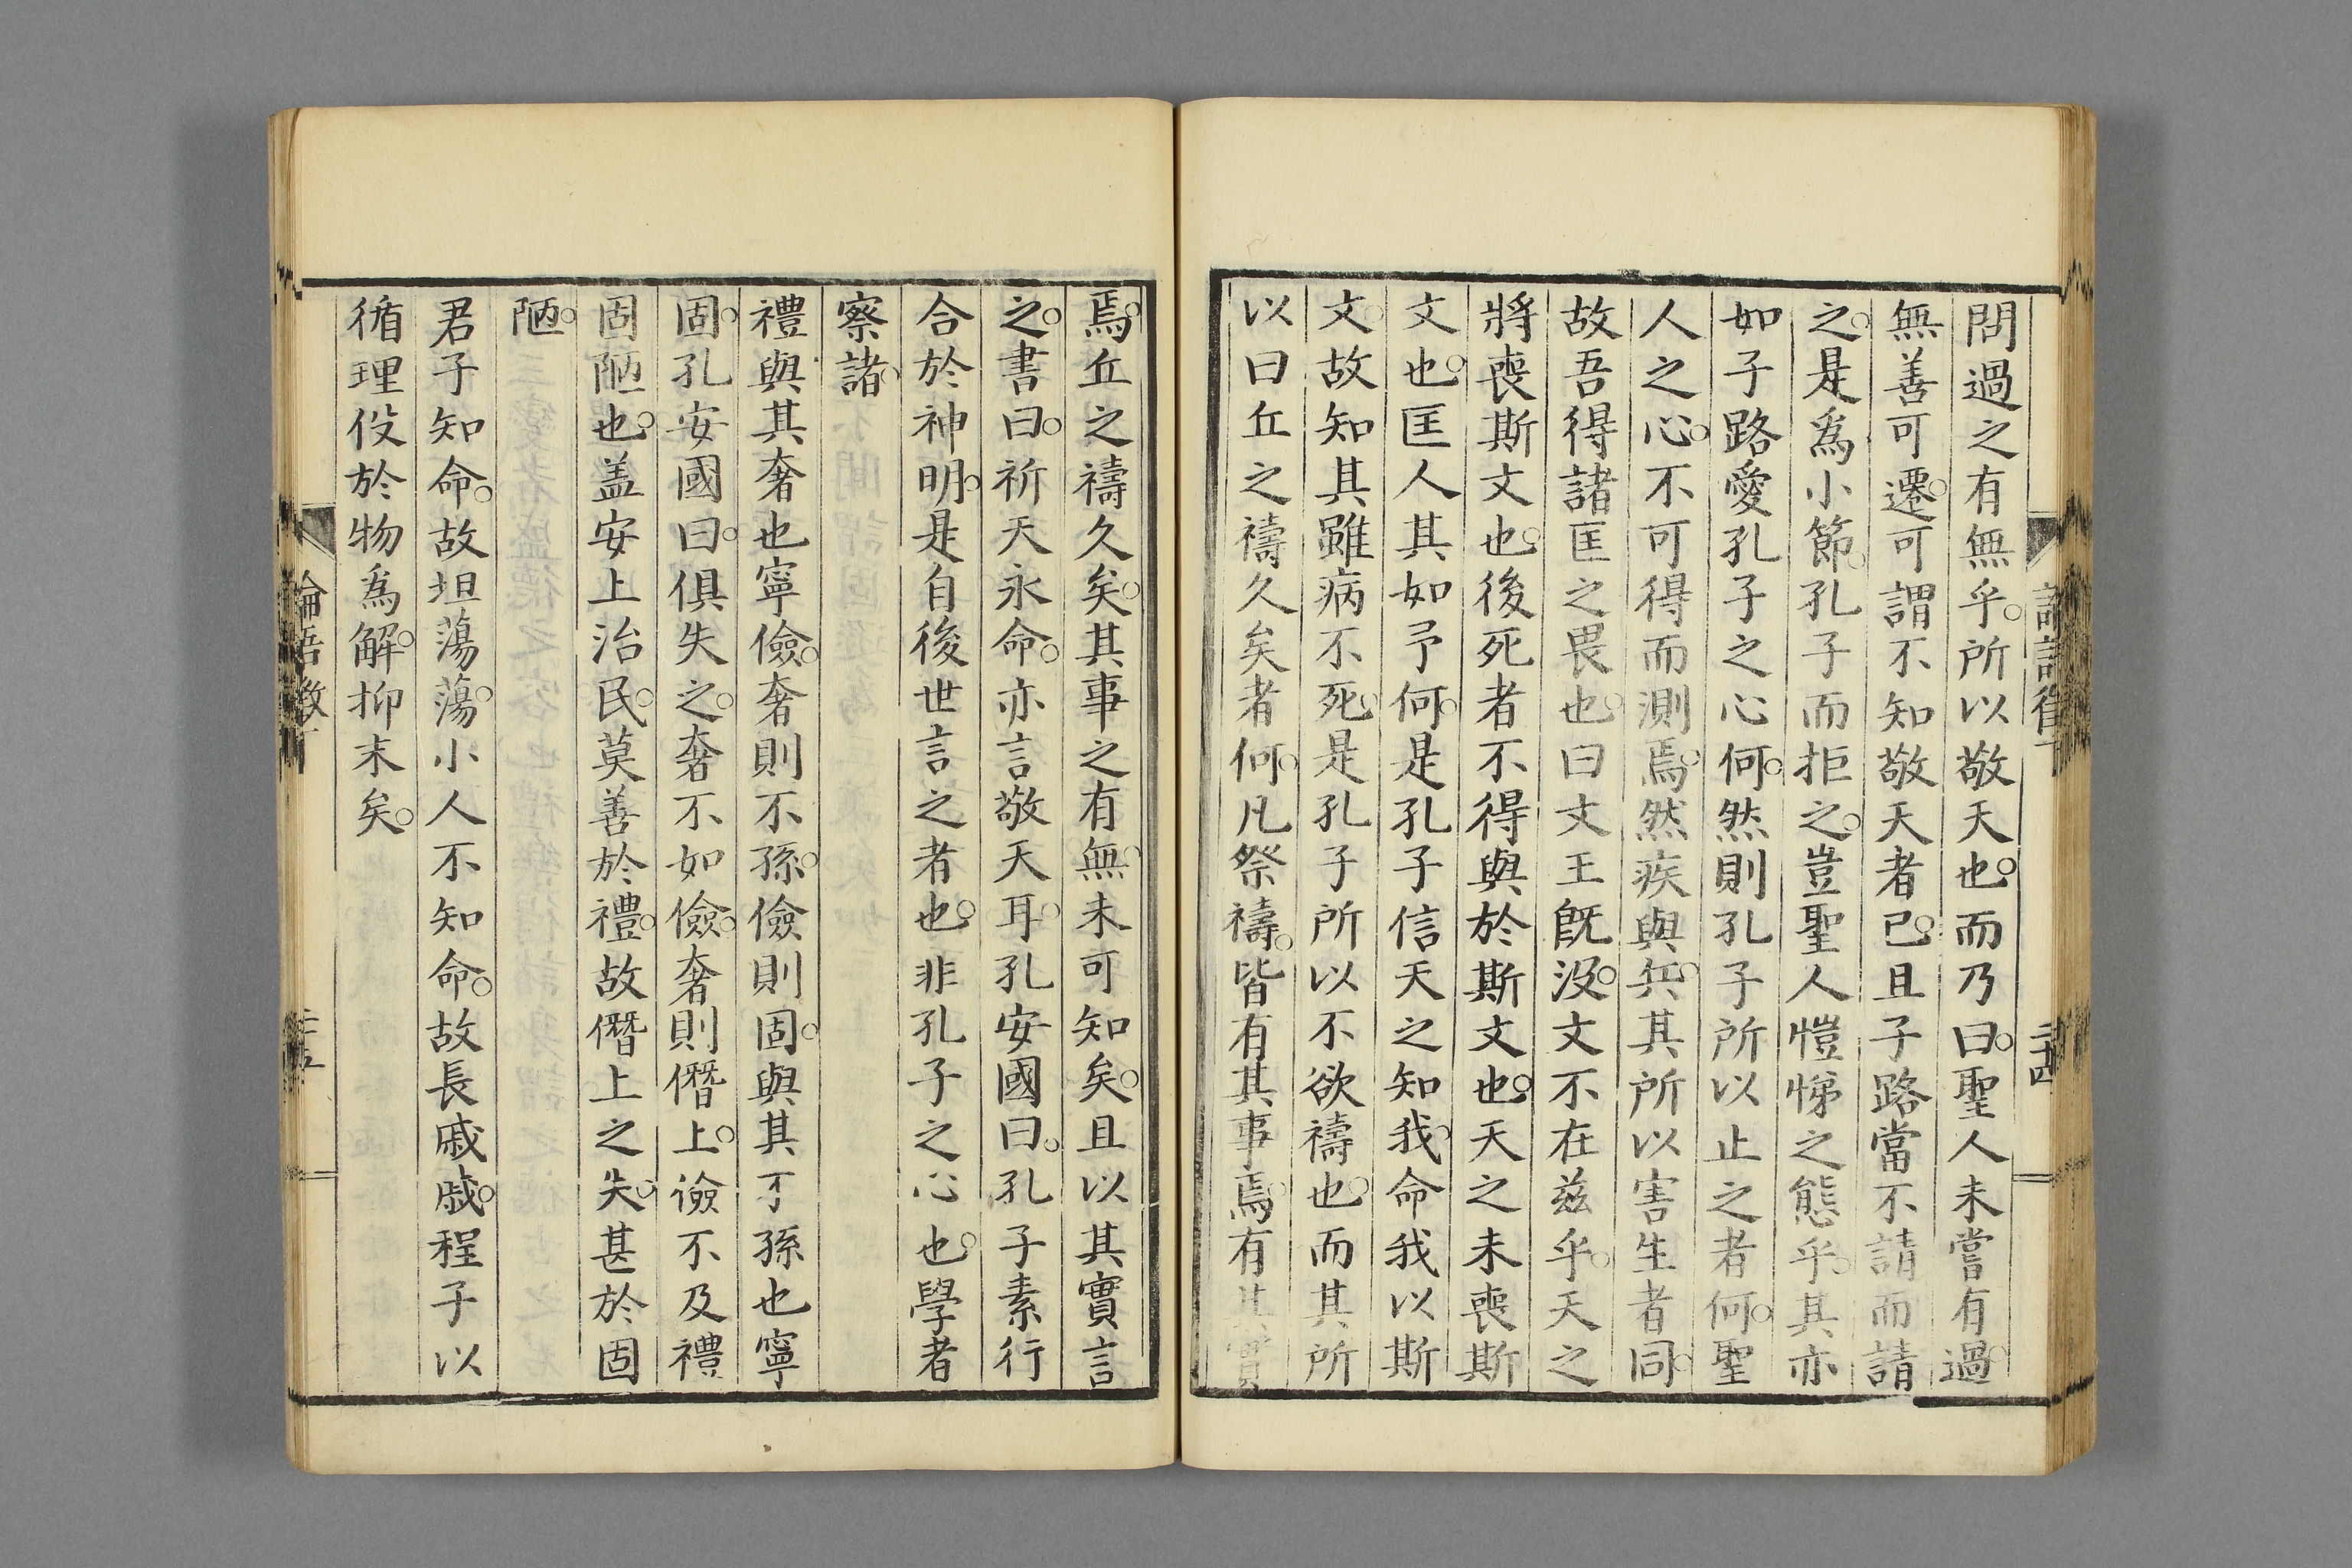 問過之有無乎。所以敬天也。而乃曰。聖人未嘗有過。
無善可遷。可謂不知敬天者已。且子路當不請而請
之。是爲小節。孔子而拒之。豈聖人愷悌之態乎。其亦
如子路愛孔子之心何。然則孔子所以止之者何。聖
人之心。不可得而測焉。然疾與兵。其所以害生者同。
故吾得諸匡之畏也。曰文王旣沒。文不在茲乎。天之
將喪斯文也。後死者不得與於斯文也。天之未喪斯
文也。匡人其如予何。是孔子信天之知我。命我以斯
文。故知其雖病不死。是孔子所以不欲禱也。而其所
以曰丘之禱久矣者何。凡祭禱。皆有其事焉。有其實
焉。丘之禱久矣。其事之有無。未可知矣。且以其實言
之。書曰。祈天永命。亦言敬天耳。孔安國曰。孔子素行
合於神明。是自後世言之者也。非孔子之心也。學者
察諸。
禮與其奢也寧儉。奢則不孫。儉則固。與其不孫也寧
固。孔安國曰。俱失之。奢不如儉。奢則僭上。儉不及禮
固陋也。盖安上治民。莫善於禮。故僭上之失。甚於固
陋。
君子知命。故坦蕩蕩。小人不知命。故長戚戚。程子以
循理役於物爲解。抑末矣。
論語徵
二十五
二十四